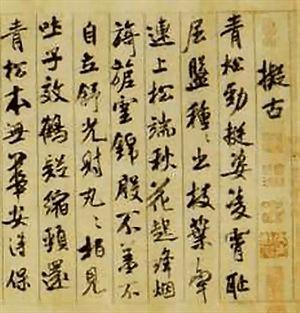 擬古
青松勁挺姿凌霄恥
屈盤種々出枝葉牽
連上松端秋花起絳烟
旖旎雲錦殷不羞不
自立舒光射丸々柏見
吐子效鶴疑縮頸還
青松本無華安得保